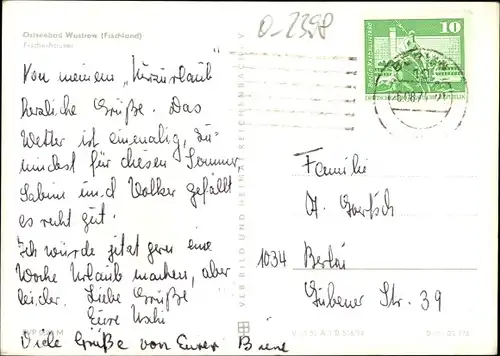 Ostseebad Wustrow (Fischland)
Fischerhäuser
O-2398
10
Von meinem „Kurzurlaub“
herzliche Grüße. Das
Wetter ist einmalig, zu-
mindest für diesen Sommer
Sabine und Volker gefällt
es recht gut.
Ich würde jetzt gern eine
Woche Urlaub machen, aber
leider. Liebe Grüße
Eure Uschi
Viele Grüße von Eurer
Familie
A.
1034 Berlin
Gubener Str. 39
VEB BILD UND HEIMAT REICHENBACH I. V.